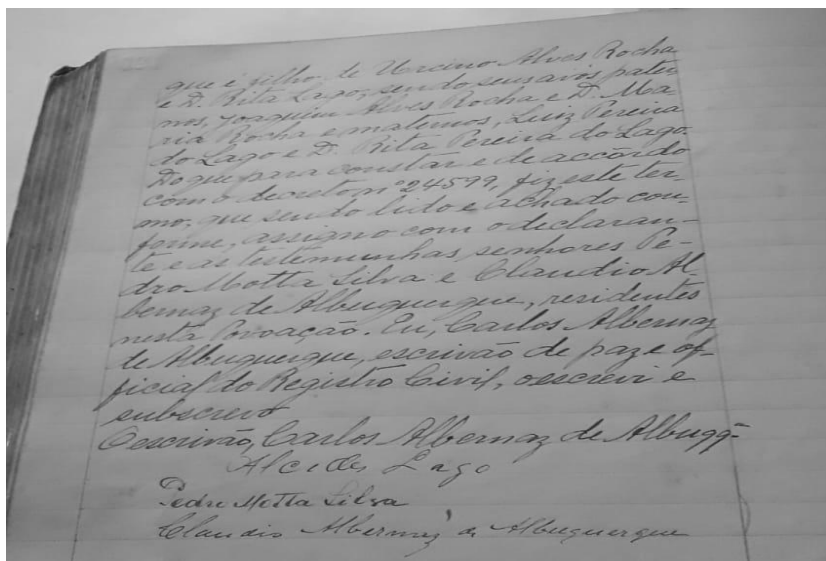 que é filho de Urcino Alves Rocha
e D. Rita Lago, sendo seus avós pater
nos, Joaquim Alves Rocha e D. Ma
ria Rocha e maternos, Luiz Pereira
do Lago e D. Rita Pereira do Lago.
Do que para constar e de accôrdo
com o decreto nº 24599, fiz este ter
mo, que sendo lido e achado con-
forme, assigno com o declaran-
te e as testemunhas senhores Pe-
dro Motta Silva e Claudio Al-
bernaz de Albuquerque, residentes
nesta Povoação. Eu, Carlos Albernaz
de Albuquerque, escrivão de paz e of-
ficial do Registro Civil, o escrevi e
subscrevo
O escrivão, Carlos Albernaz de Albuqq-
Alcides Lago
Pedro Motta Silva
Claudio Albernaz de Albuquerque